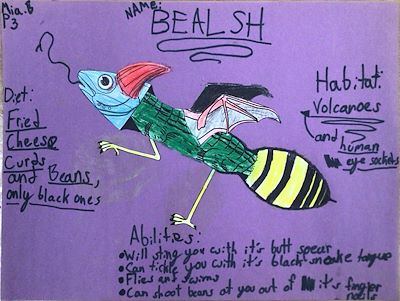 Mia.B
P3
NAME:
BEALSH
Diet:
Fried
Cheese
Curds
and Beans,
only black ones
Habitat:
Volcanoes
and human
eye sockets
Abilities:
• Will sting you with it's butt spear
• Can tickle you with it's black snake tongue
• Flies and swims
• Can shoot beans at you out of it's finger
nails